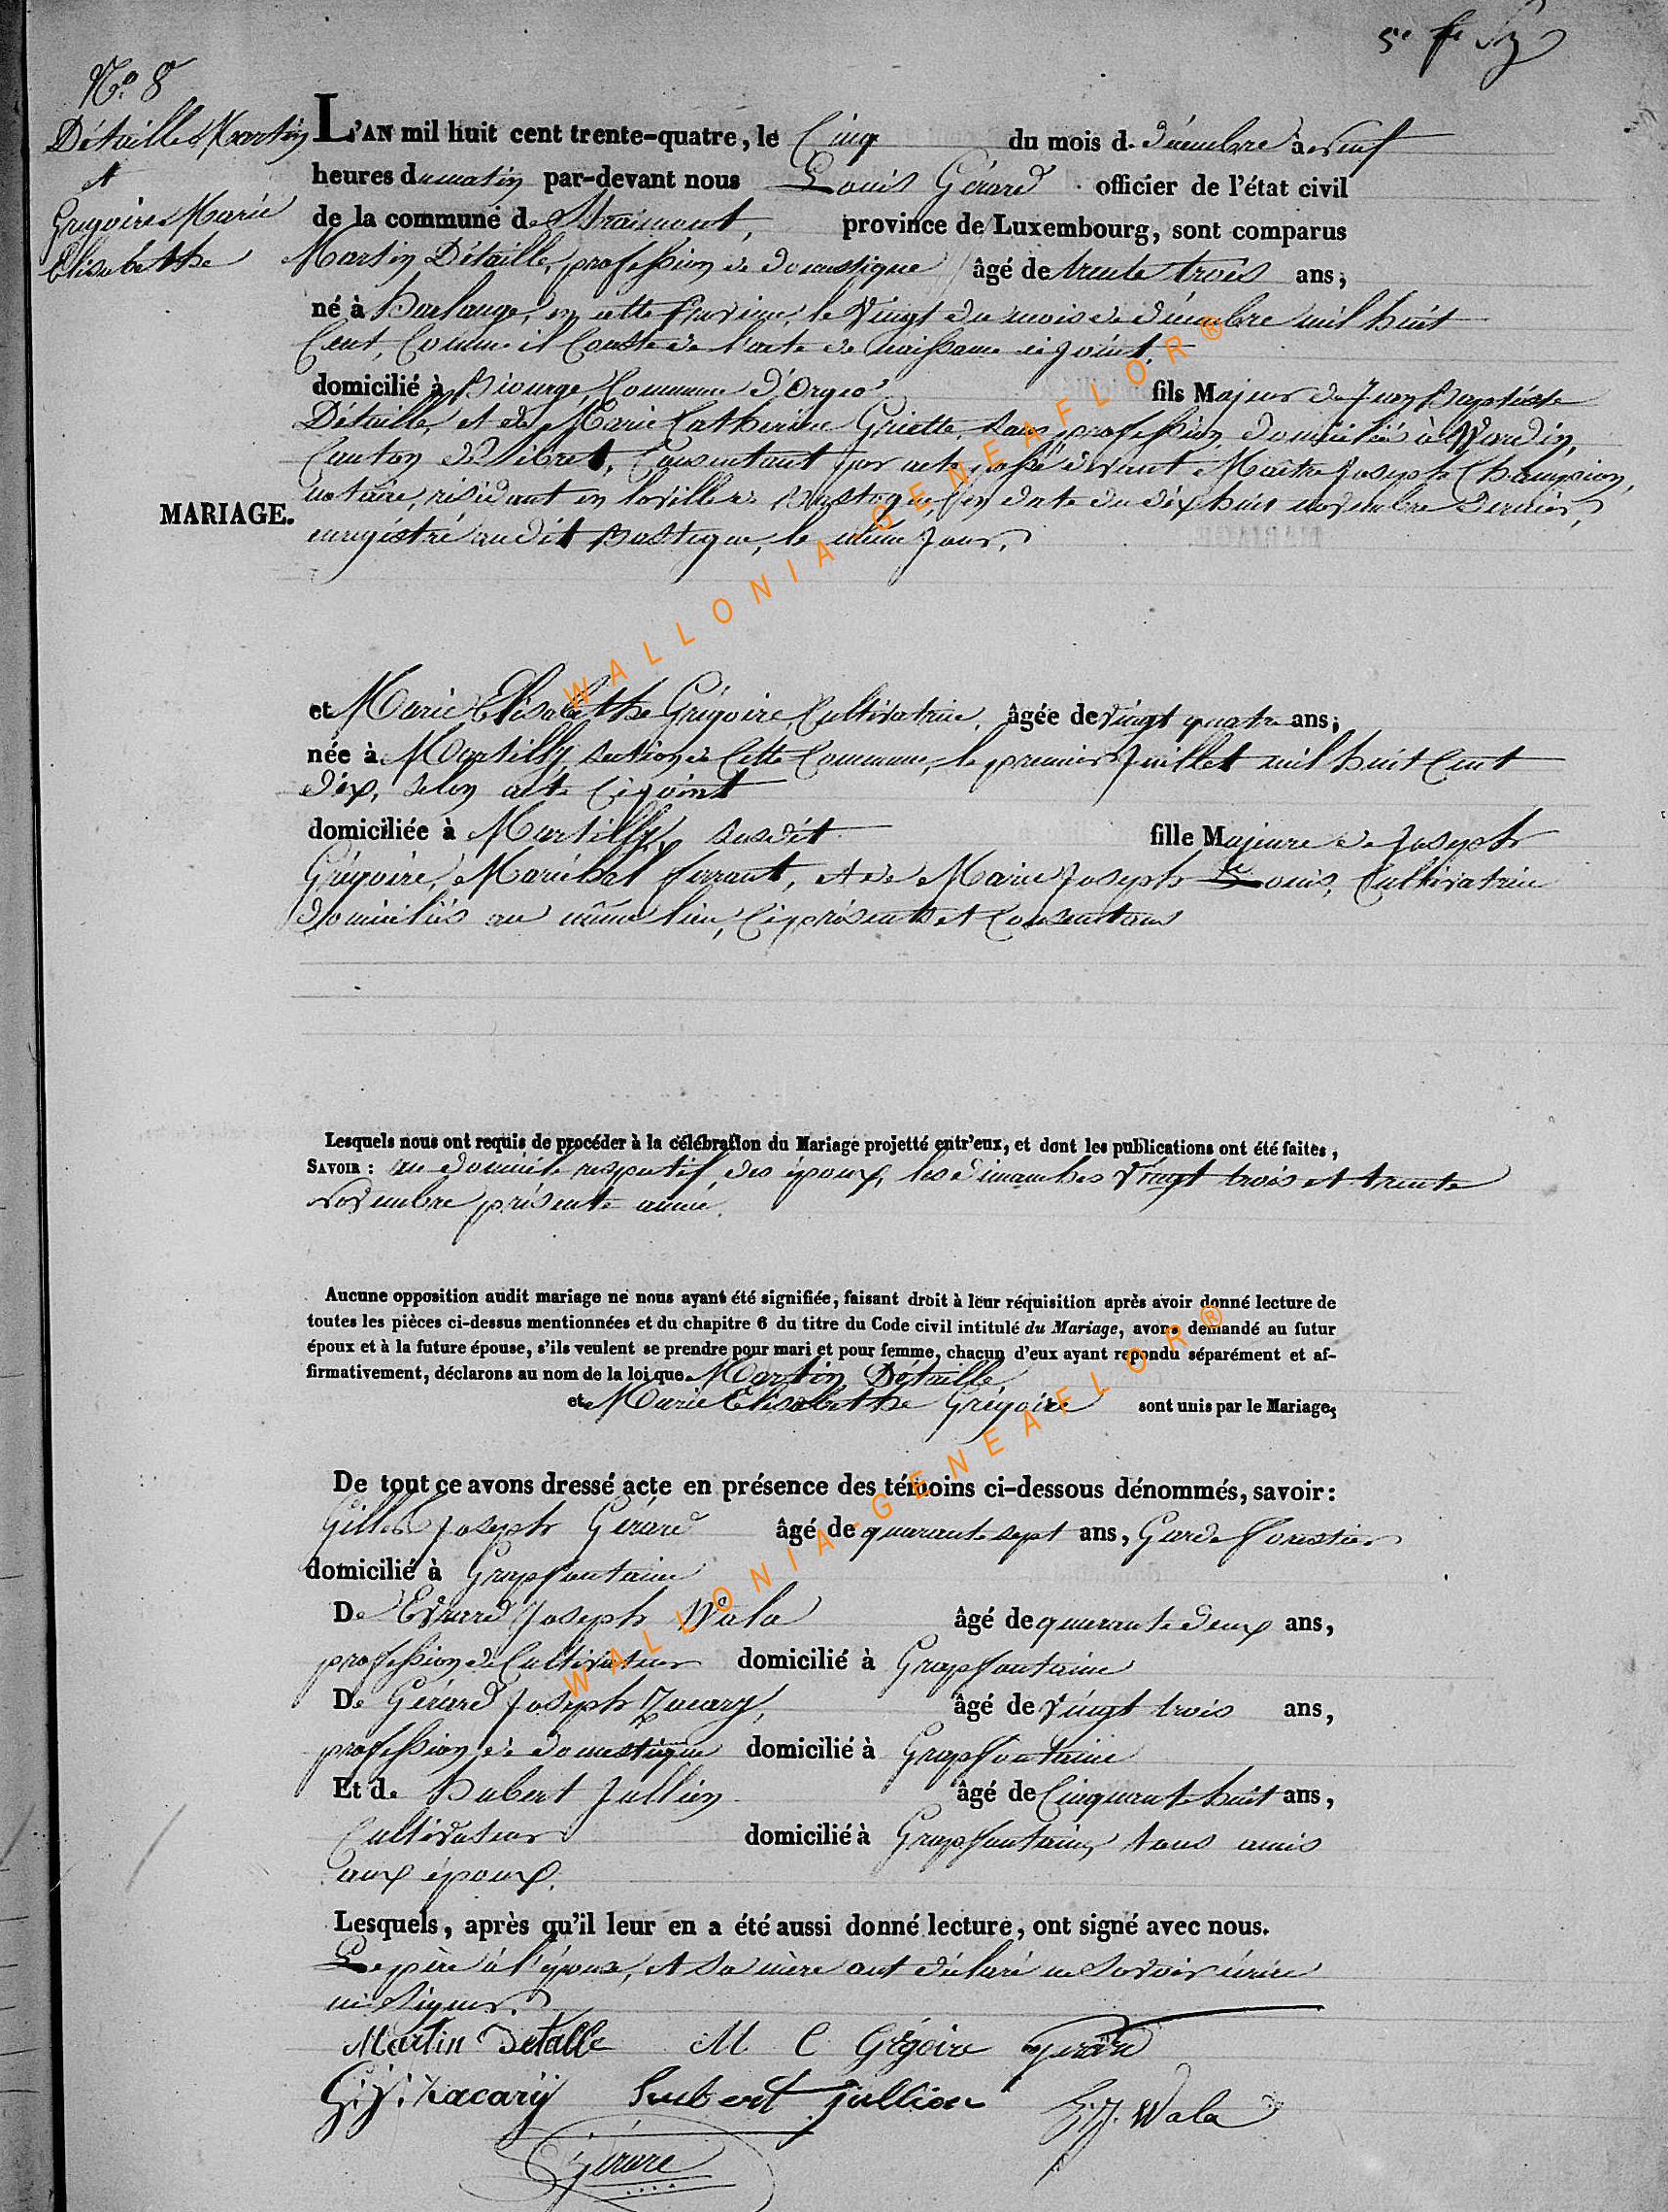 5e f
No 8
Détaille Martin
et
Grégoire Marie
Elisabethe
MARIAGE.
L'AN mil huit cent trente-quatre, le Cinq du mois de décembre à neuf
heures du matin par-devant nous Louis Gérard officier de l'état civil
de la commune de Straimont, province de Luxembourg, sont comparus
Martin Détaille, profession de domestique âgé de trente trois ans,
né à Harlange, en cette Province, le Vingt du mois de décembre mil huit
Cent, Comme il Conste de l'acte de naissance ci joint,
domicilié à Biourge, Commune d'Orgeo fils Majeur de Jean Baptiste
Détaille, et de Marie Catherine Griette, sans profession, domiciliés à Wardin,
Canton de Sibret, Consentant par acte passé devant Maître Joseph Champion,
notaire, résidant en la ville de Bastogne, en date du dix huit novembre dernier,
enregistré au dit Bastogne, le même jour.
et Marie Elisabethe Grégoire, Cultivatrice, âgée de vingt quatre ans;
née à Martilly section de Cette Commune, le premier Juillet mil huit Cent
dix, selon acte Ci joint
domiciliée à Martilly, susdit fille Majeure de Joseph
Grégoire, Maréchal ferrant, et de Marie Joseph Louis, Cultivatrice
domiciliés au même lieu, Ci présents et Consentans
Lesquels nous ont requis de procéder à la célébration du Mariage projetté entr'eux, et dont les publications ont été faites,
SAVOIR : au domicile respectif des époux, les dimanches Vingt trois et trente
novembre présente année.
Aucune opposition audit mariage ne nous ayant été signifiée, faisant droit à leur réquisition après avoir donné lecture de
toutes les pièces ci-dessus mentionnées et du chapitre 6 du titre du Code civil intitulé du Mariage, avons demandé au futur
époux et à la future épouse, s'ils veulent se prendre pour mari et pour femme, chacun d'eux ayant repondu séparément et af-
firmativement, déclarons au nom de la loi que Martin Détaille
et Marie Elisabethe Grégoire sont unis par le Mariage;
De tout ce avons dressé acte en présence des témoins ci-dessous dénommés, savoir:
Gilles Joseph Gérard âgé de quarante sept ans, Garde forestier
domicilié à Grapfontaine
De Evrard Joseph Wala âgé de quarante deux ans,
profession de Cultivateur domicilié à Grapfontaine
De Gérard Joseph Zacary, âgé de vingt trois ans,
profession de domestique domicilié à Grapfontaine
Et de Hubert Jullion âgé de Cinquante huit ans,
Cultivateur domicilié à Grapfontaine, tous amis
aux époux.
Lesquels, après qu'il leur en a été aussi donné lecture, ont signé avec nous.
Le père à l'épouse, et sa mère ont déclaré ne savoir écrire
ni signer.
Martin Detalle M E Grégoire Gérard
G. J. Zacary Hubert jullion E. J. Wala
Gérard
WALLONIA-GENEAFLOR®
WALLONIA-GENEAFLOR®